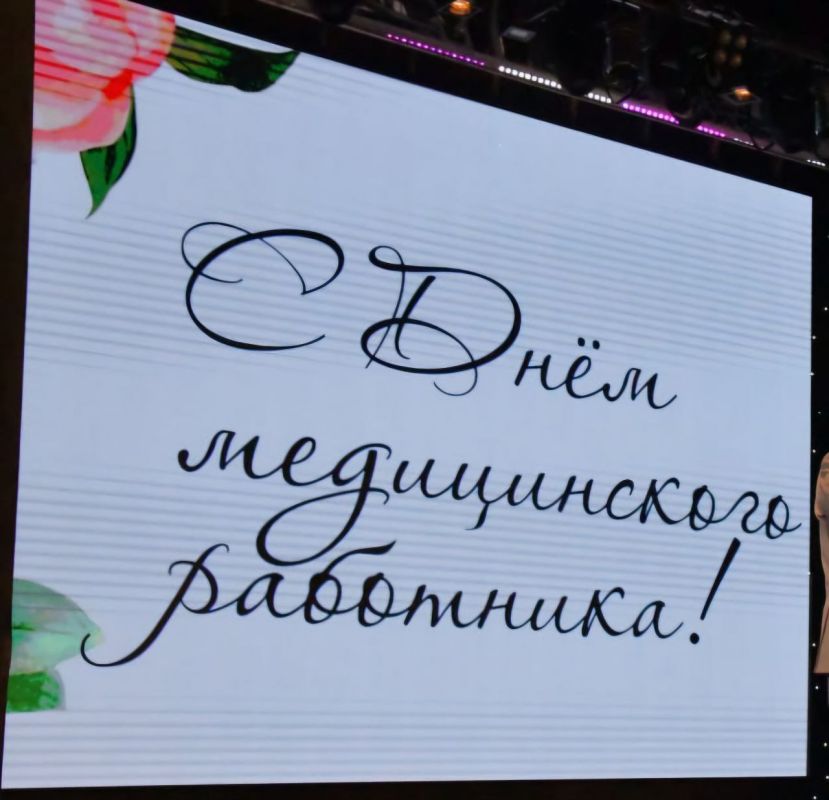 С Днём
медицинского
работника!